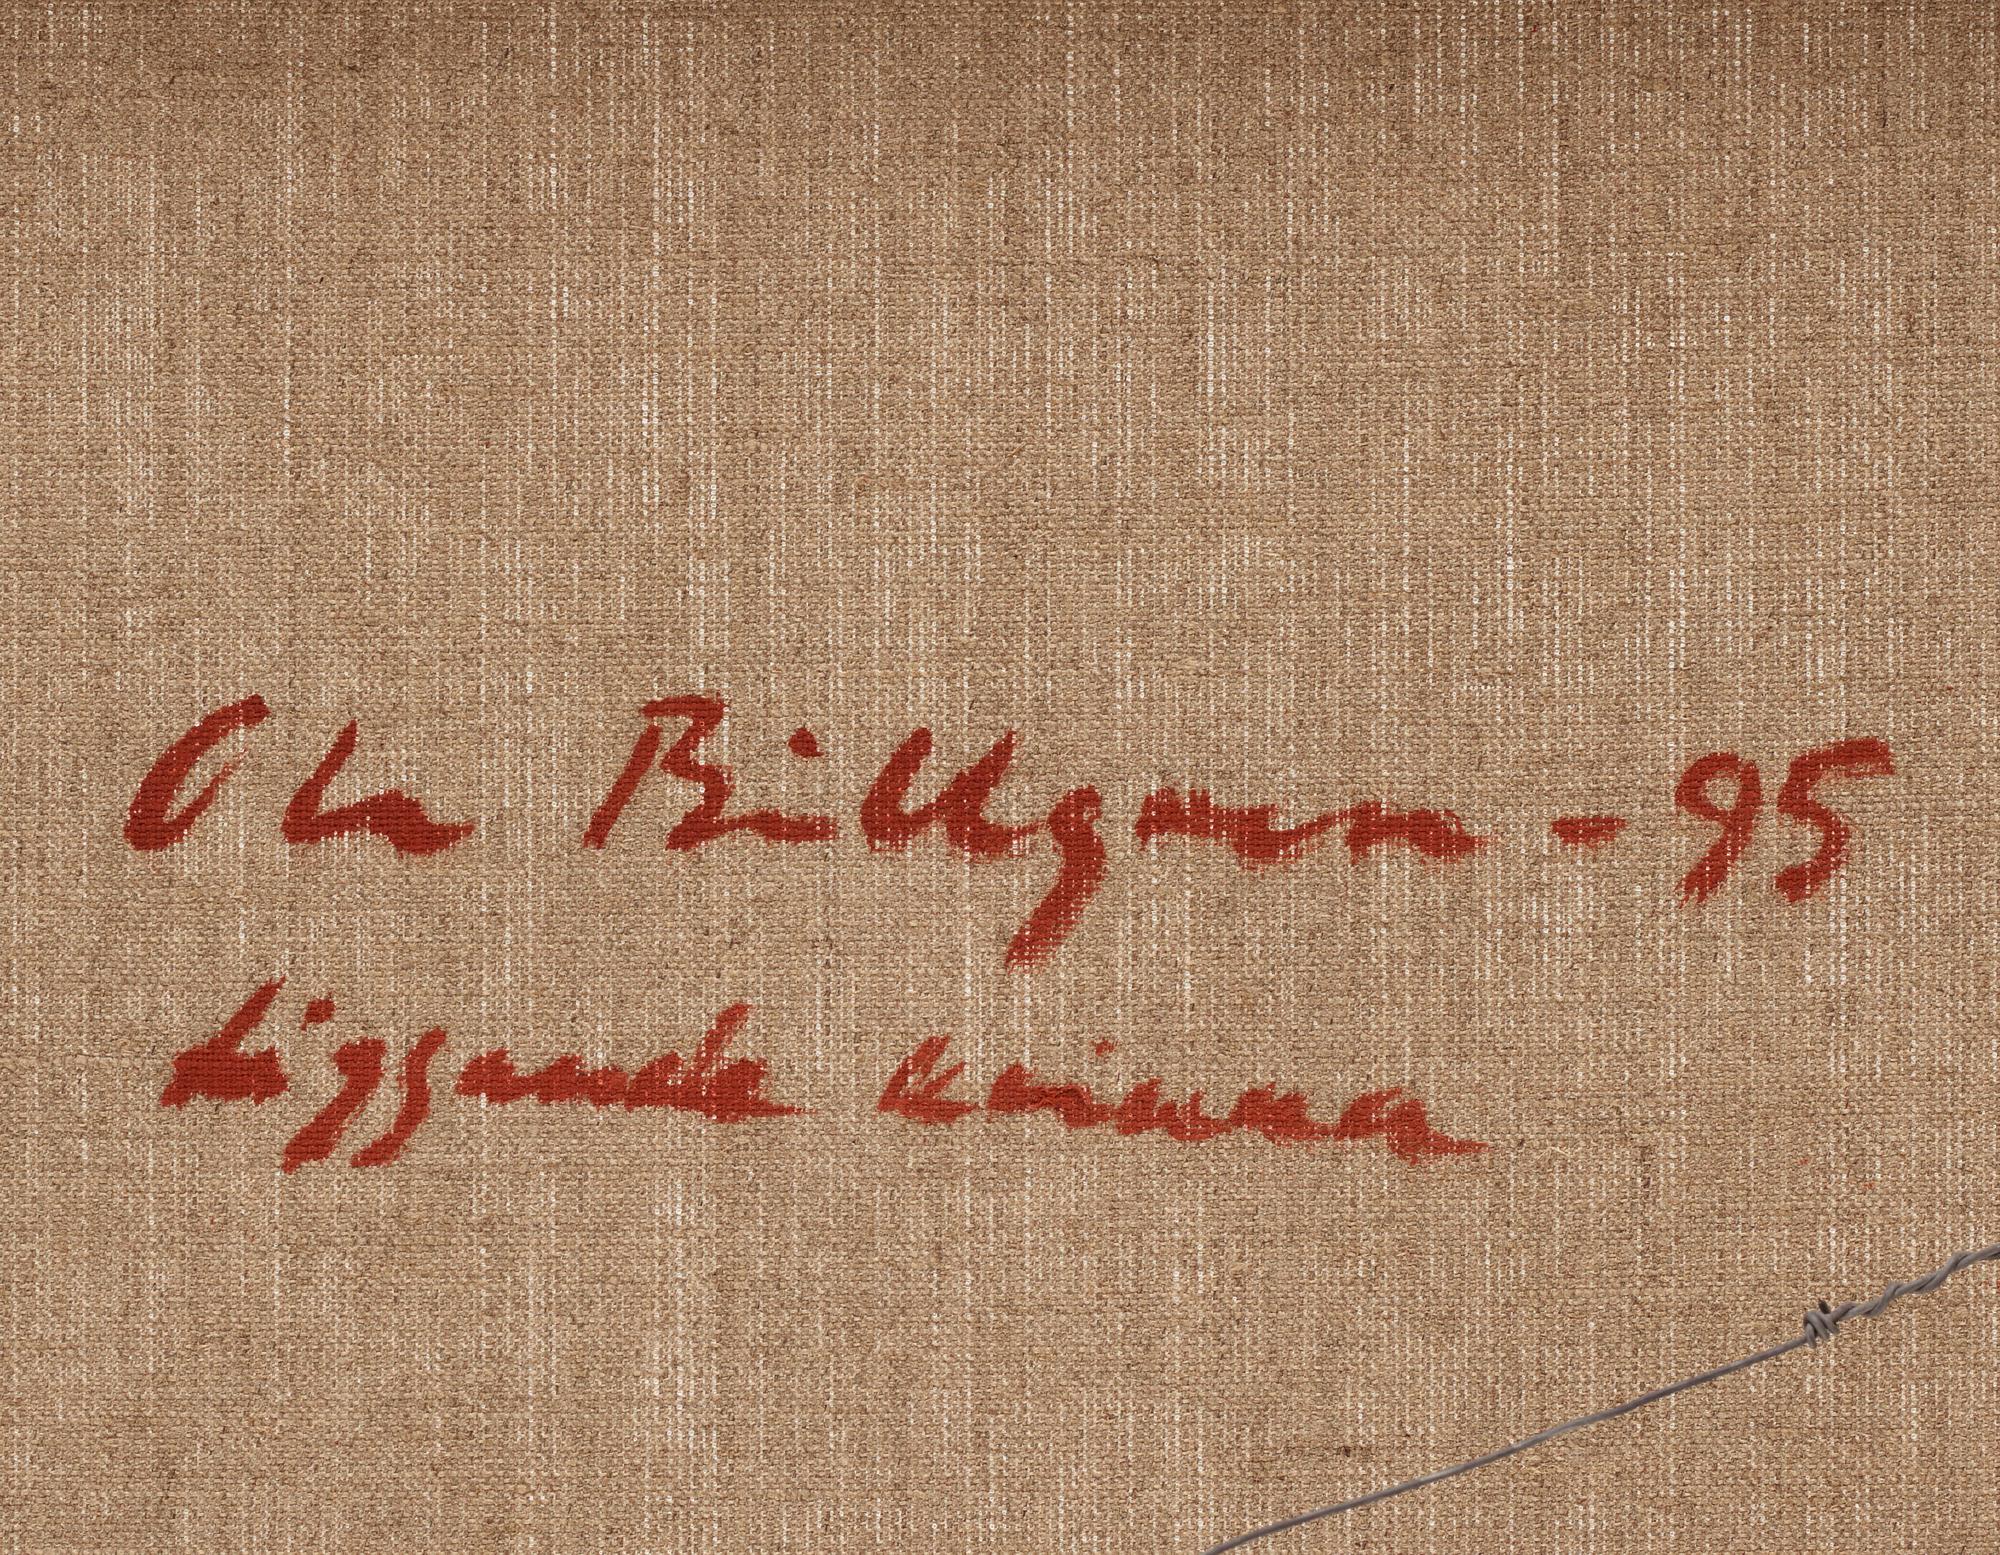 Ola Billgren - 95
Liggande kvinna